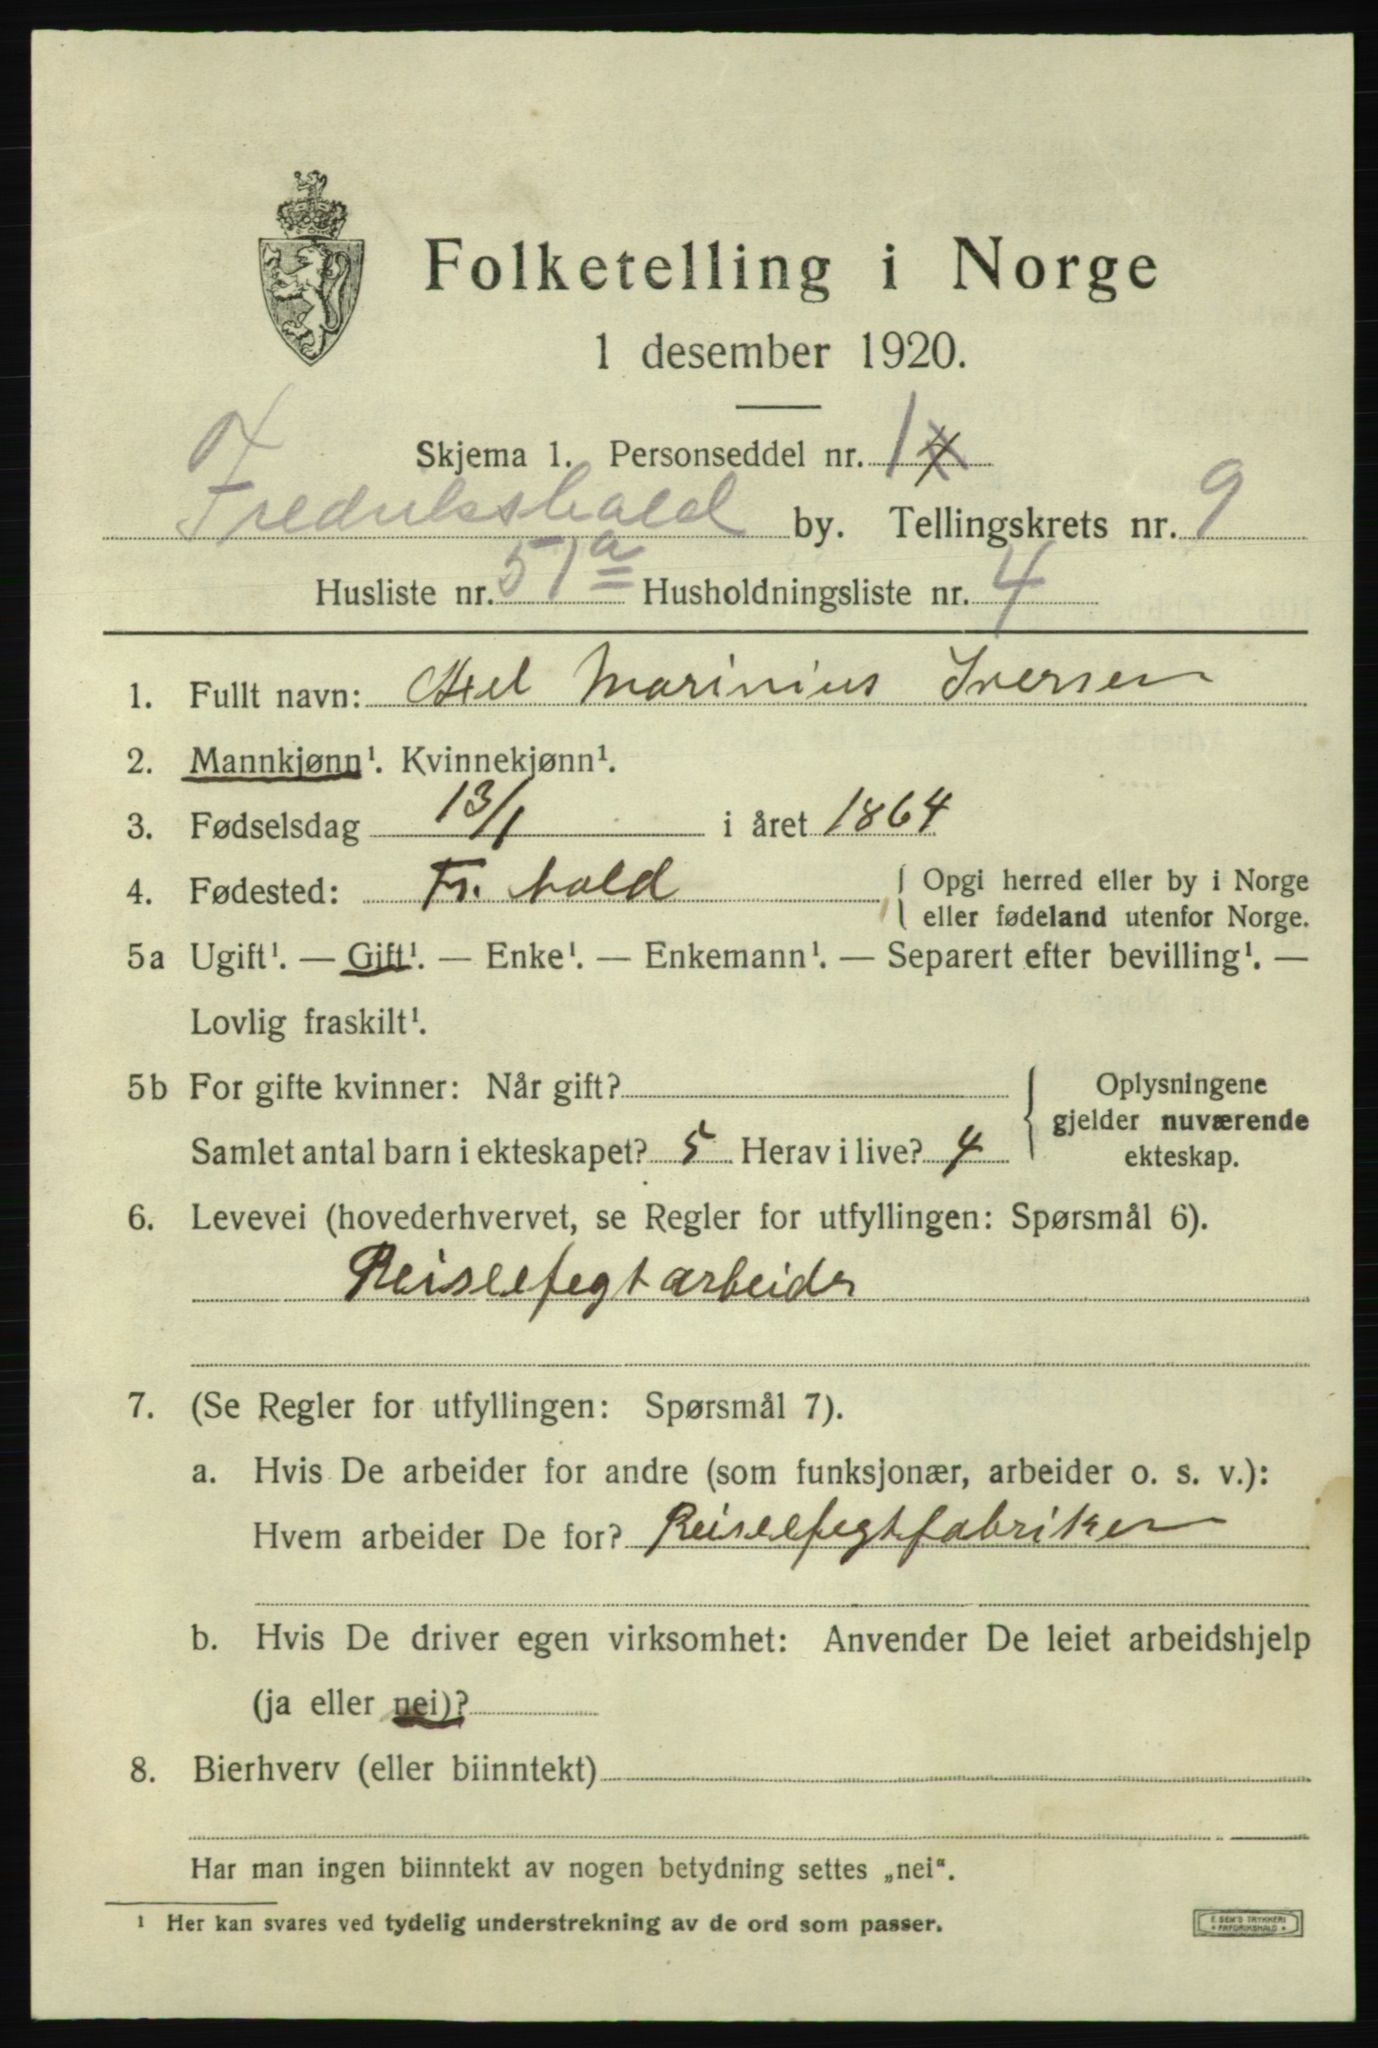 Folketelling i Norge
1 desember 1920.
Skjema 1. Personseddel nr. 1
Fredrikshald by. Tellingskrets nr. 9
Husliste nr. 51a Husholdningsliste nr. 4
1. Fullt navn: Axel Marinius Iversen
2. Mannkjønn¹. Kvinnekjønn¹.
3. Fødselsdag 13/1 i året 1864
4. Fødested: Fr. hald { Opgi herred eller by i Norge
eller fødeland utenfor Norge.
5a Ugift¹. — Gift¹. — Enke¹. — Enkemann¹. — Separert efter bevilling¹. —
Lovlig fraskilt¹.
5b For gifte kvinner: Når gift? { Oplysningene
gjelder nuværende
Samlet antal barn i ekteskapet? 5 Herav i live? 4 ekteskap.
6. Levevei (hovederhvervet, se Regler for utfyllingen: Spørsmål 6).
Reiseefegtarbeider
7. (Se Regler for utfyllingen: Spørsmål 7).
a. Hvis De arbeider for andre (som funksjonær, arbeider o. s. v.):
Hvem arbeider De for? Reiseefegtfabriken
b. Hvis De driver egen virksomhet: Anvender De leiet arbeidshjelp
(ja eller nei)?
8. Bierhverv (eller biinntekt)
Har man ingen biinntekt av nogen betydning settes „nei“.
¹ Her kan svares ved tydelig understrekning av de ord som passer.
E. SEM'S TRYKKERI
FREDRIKSHALD